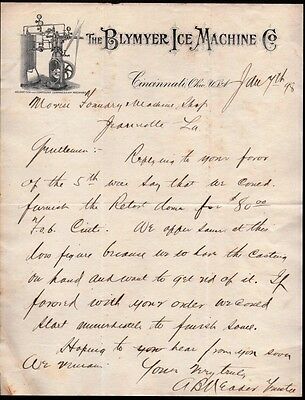 THE BLYMYER ICE MACHINE CO
Cincinnati, Ohio, U.S.A. Jan 7th 98
Foundry & Machine Shop
Jeannette La
Gentlemen:-
Replying to your favor
of the 5th will say that we could
furnish the Retort dome for $80.00
f.o.b. Cinti. We offer same at this
low figure because we so have the casting
on hand and want to get rid of it. If
favored with your order we could
start immediately to finish same.
Hoping to you hear from you soon
We remain
Yours Very truly,
A B Meader Trustee